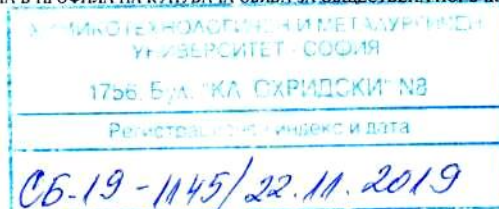 В ПРОФИЛА НА КУПУВАЧА
ХИМИКОТЕХНОЛОГИЧЕН И МЕТАЛУРГИЧЕН
УНИВЕРСИТЕТ - СОФИЯ
1756, Бул. "КЛ. ОХРИДСКИ" №8
Регистрационен индекс и дата
СБ-19-1145/22.11.2019